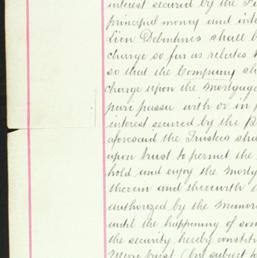 interest secured by the Fi
principal money and inte
lien Debentures shall b
charge so far as relates t
so that the Company sh
charge upon the Mortgag
pari passu with or in p
interest secured by the p
aforesaid the Trustees sha
upon trust to permit the
hold and enjoy the Mortg
therein and therewith t
authorized by the Memor
until the happening of som
the security hereby constit
Upon trust (but subject to